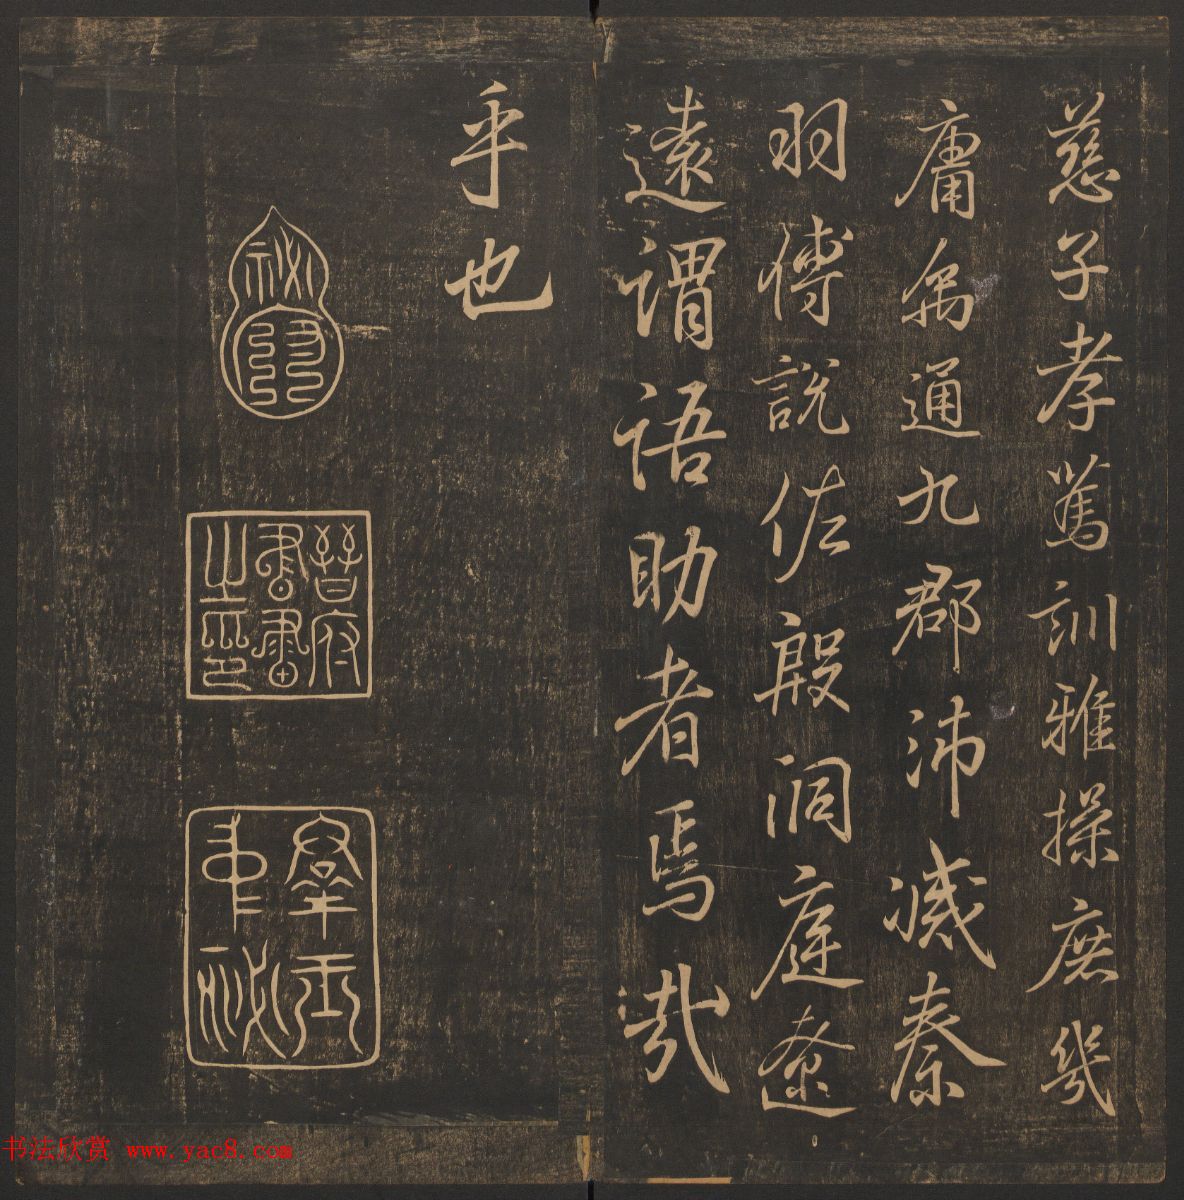 慈子孝篤訓雅操庶幾
庸禹通九郡沛滅秦
羽傅說佐殷洞庭遼
遠謂語助者焉哉
乎也
晉府書畫之印
羣玉中祕
书法欣赏 www.yac8.com